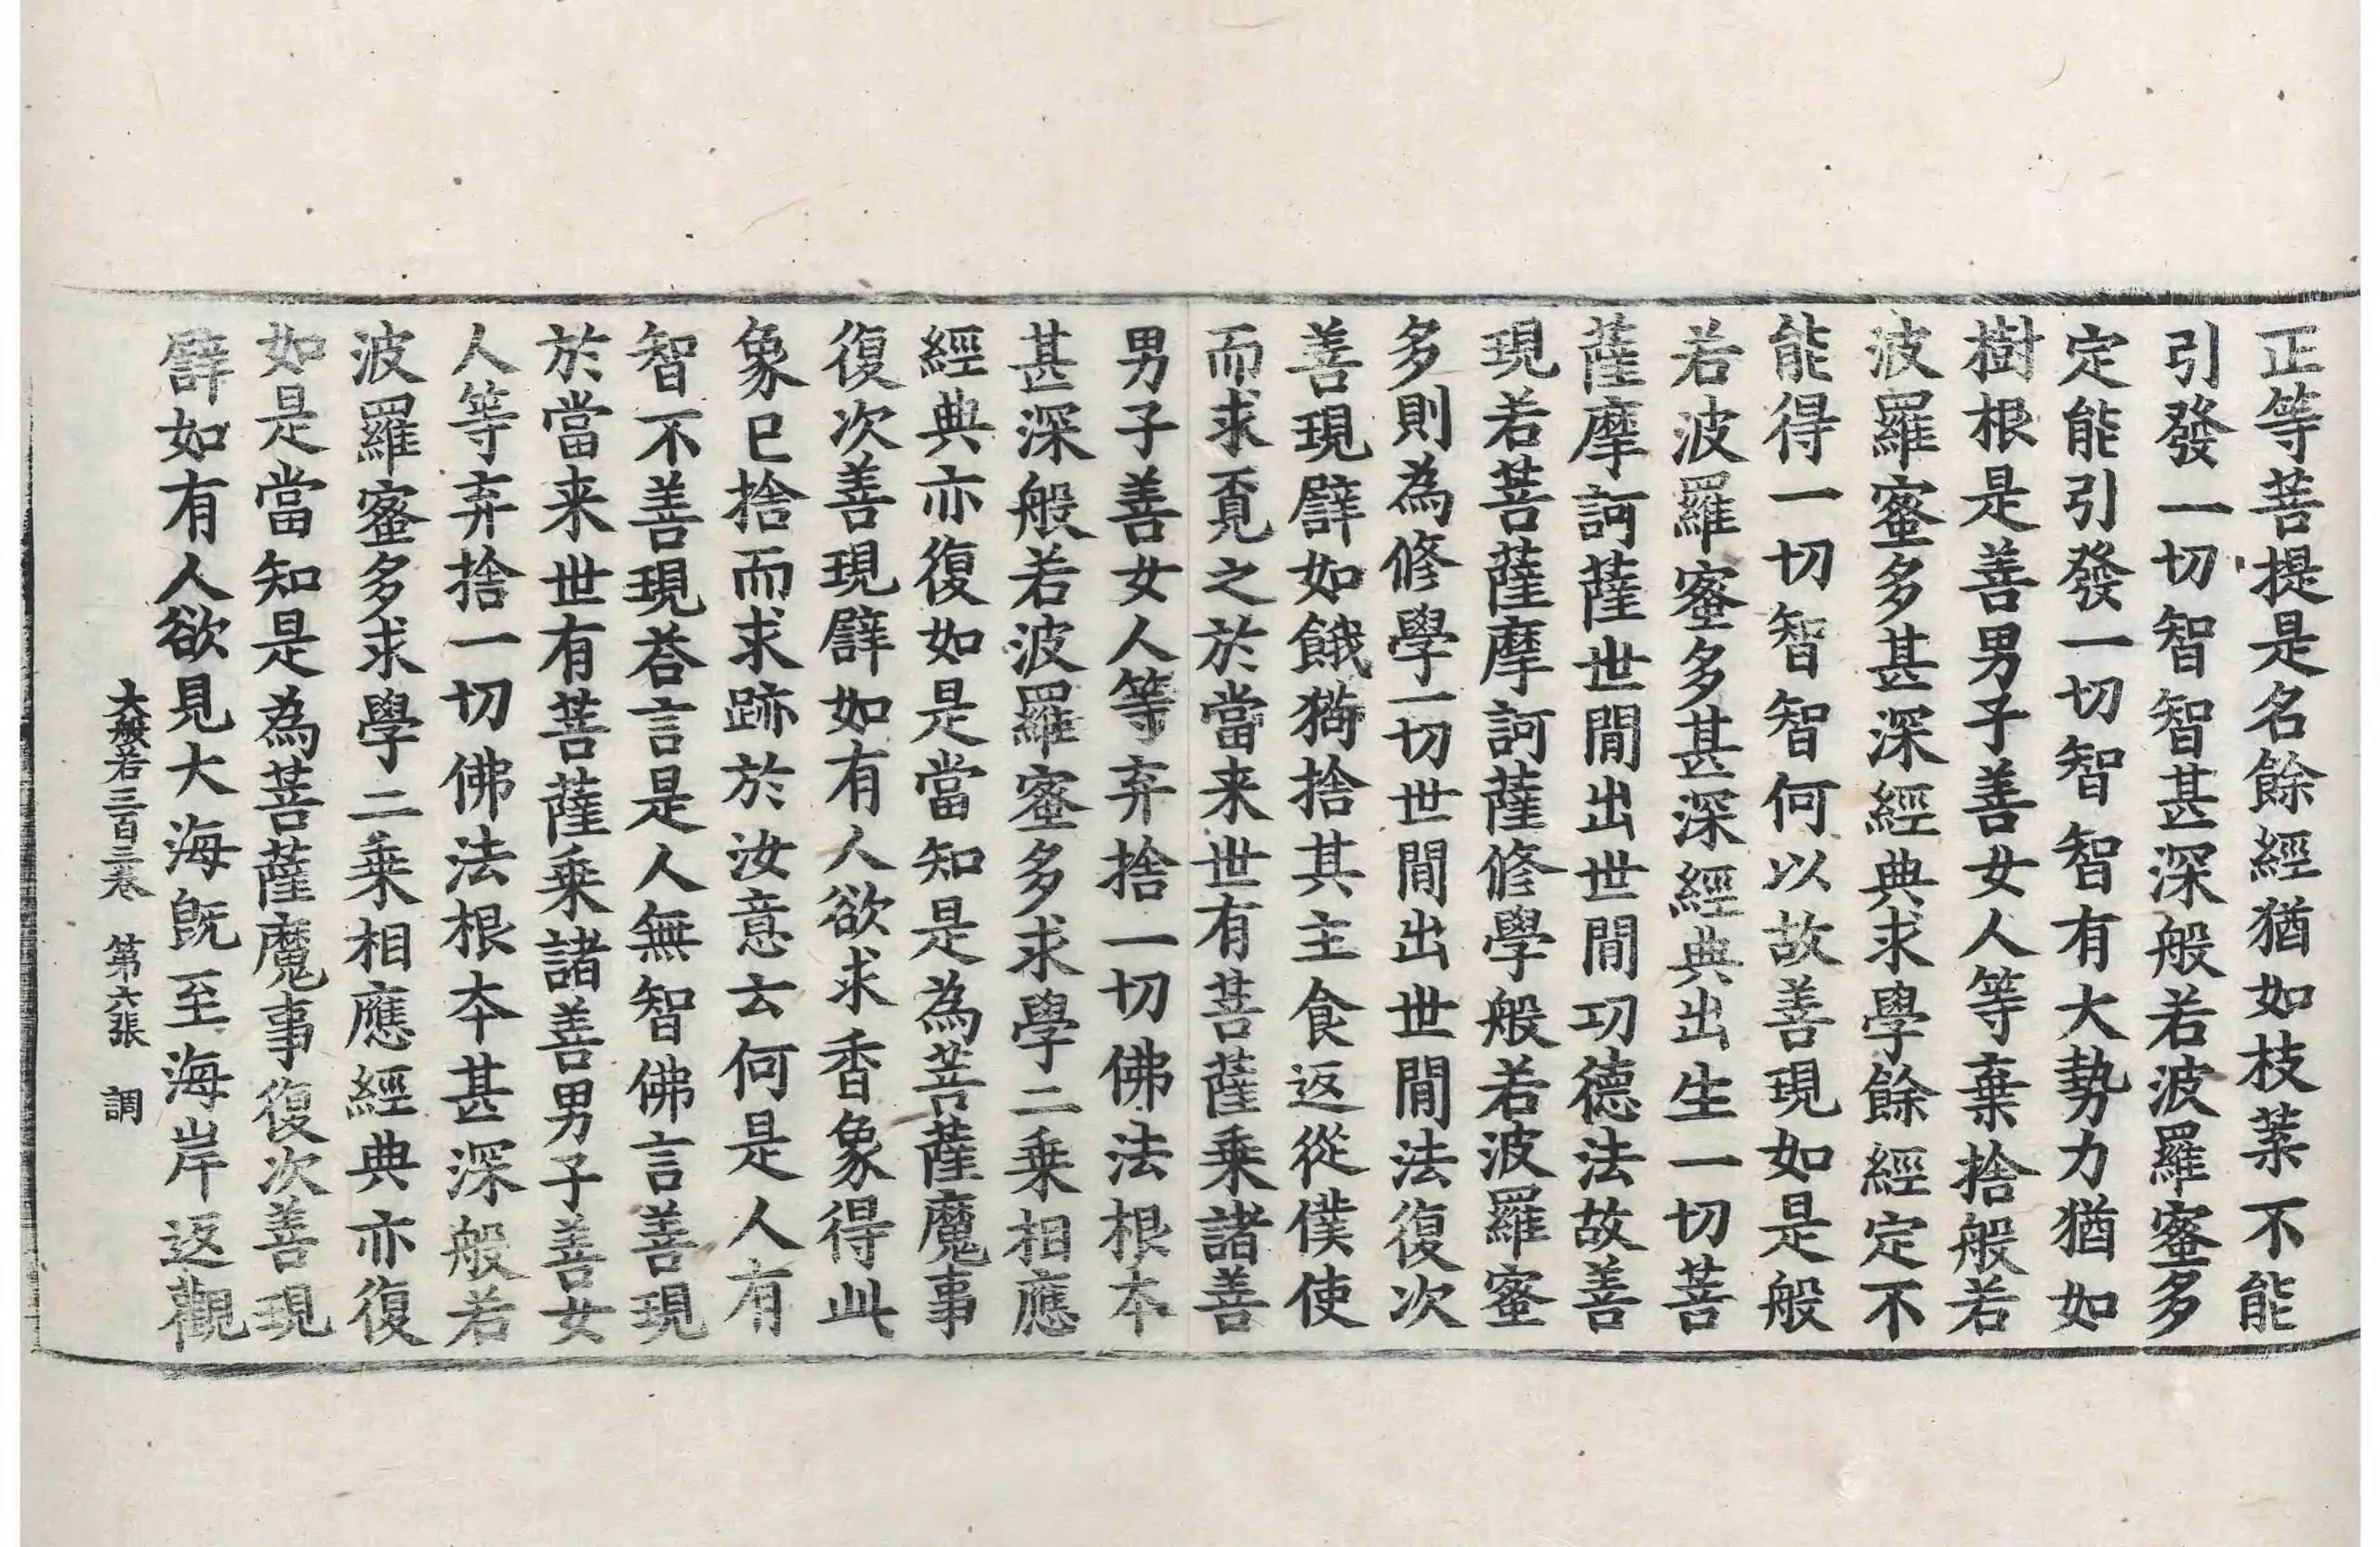 正等菩提是名餘經猶如枝葉不能
引發一切智智甚深般若波羅蜜多
定能引發一切智智有大勢力猶如
樹根是善男子善女人等棄捨般若
波羅蜜多甚深經典求學餘經定不
能得一切智智何以故善現如是般
若波羅蜜多甚深經典出生一切菩
薩摩訶薩世間出世間功德法故善
現若菩薩摩訶薩修學般若波羅蜜
多則為修學一切世間出世間法復次
善現譬如餓猗捨其主食返從僕使
而求覓之於當来世有菩薩乗諸善
男子善女人等弃捨一切佛法根本
甚深般若波羅蜜多求學二乗相應
經典亦復如是當知是為菩薩魔事
復次善現譬如有人欲求香象得此
象已捨而求跡於汝意云何是人有
智不善現荅言是人無智佛言善現
於當来世有菩薩乗諸善男子善女
人等弃捨一切佛法根夲甚深般若
波羅蜜多求學二乗相應經典亦復
如是當知是為菩薩魔事復次善現
譬如有人欲見大海既至海岸返觀
大般若三百三卷 第六張 調